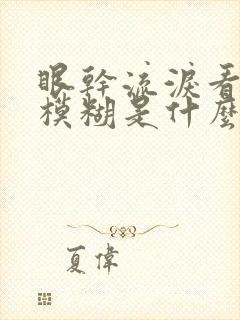 眼幹流淚看
模糊是什麼
夏偉